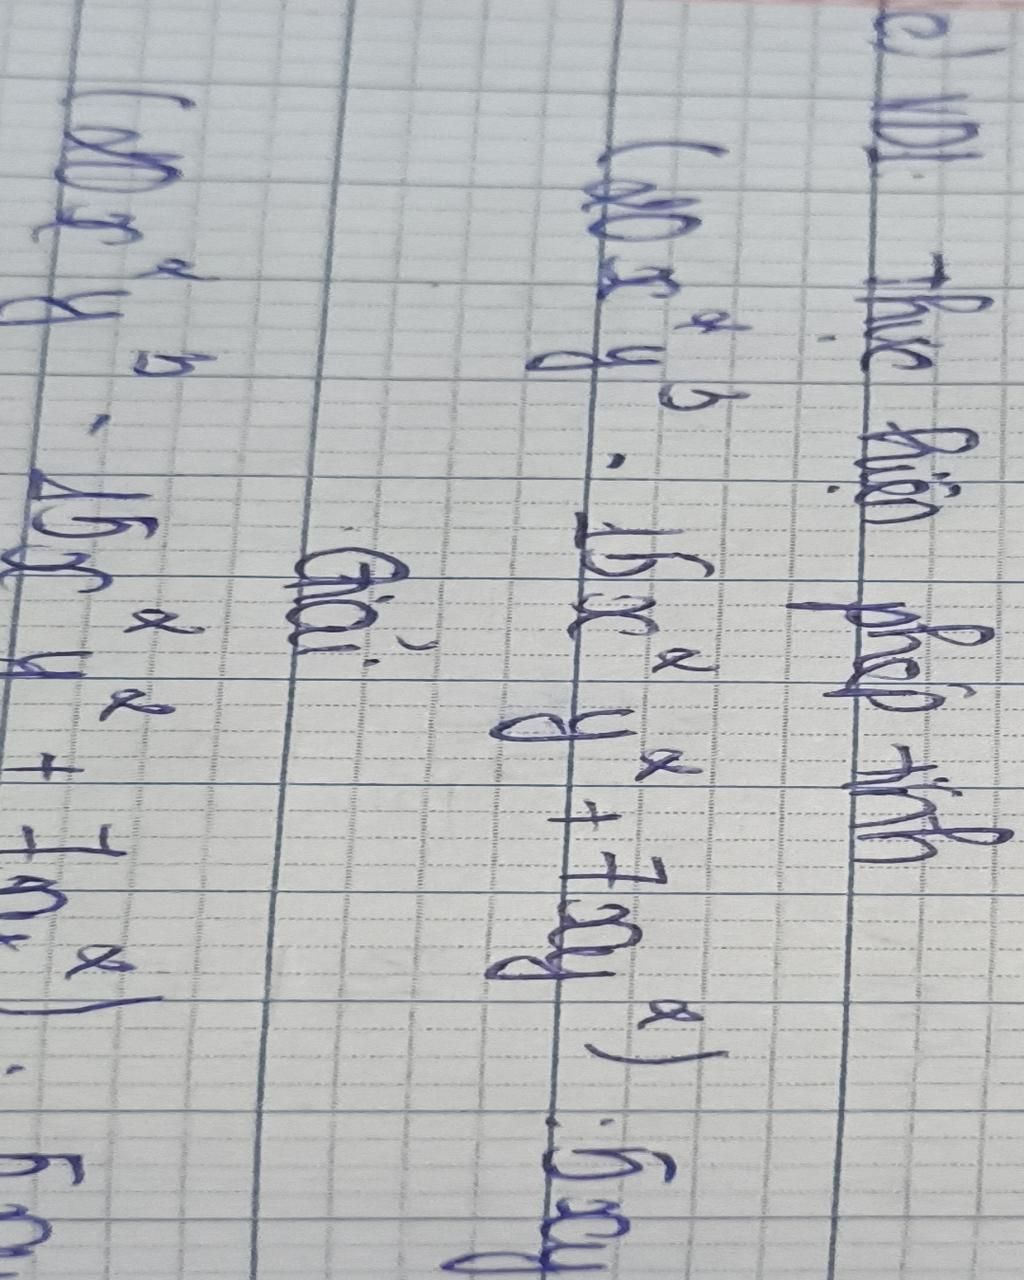 c) VD1: Thực hiện phép tính
(20x²y³ . 15x²y² + 7xy²) : 5xy
Giải:
(20x²y³ . 15x²y² + 7x²) : 5x